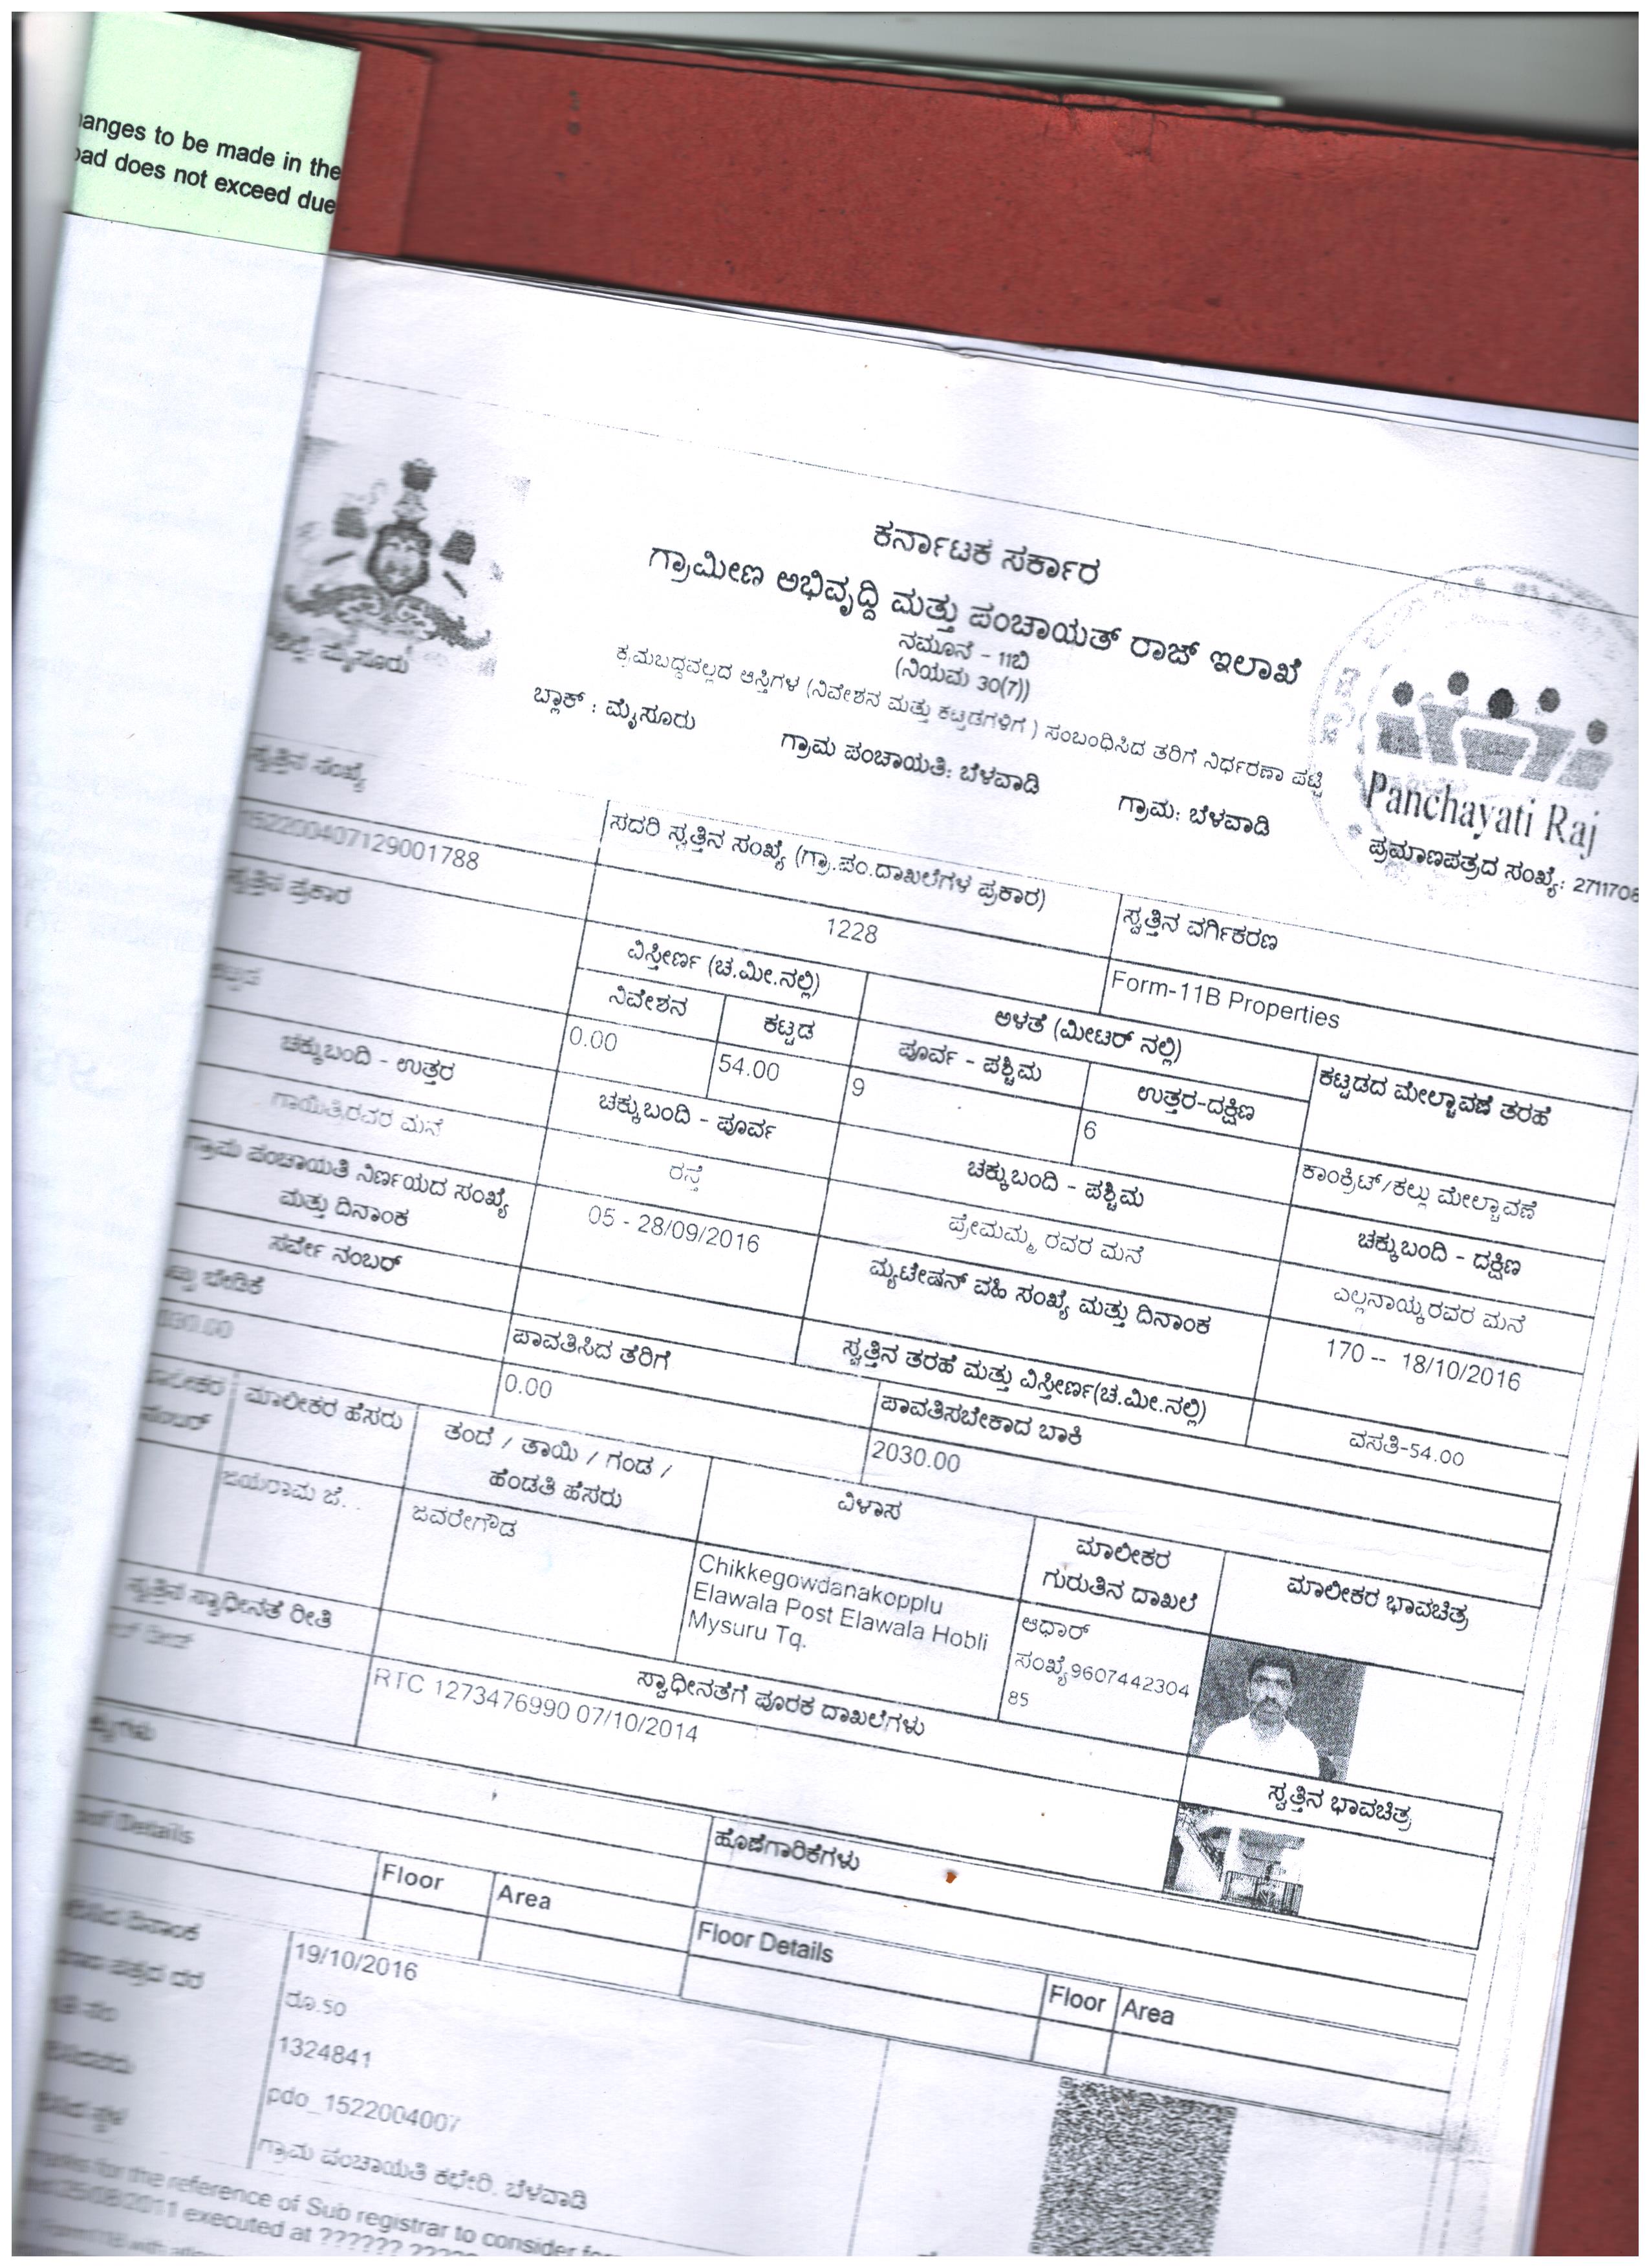 anges to be made in the
ad does not exceed due
ಕರ್ನಾಟಕ ಸರ್ಕಾರ
ಗ್ರಾಮೀಣ ಅಭಿವೃದ್ಧಿ ಮತ್ತು ಪಂಚಾಯತ್ ರಾಜ್ ಇಲಾಖೆ
ನಮೂನೆ - 11ಬಿ
(ನಿಯಮ 30(7))
ಕ್ರಮಬದ್ಧವಲ್ಲದ ಆಸ್ತಿಗಳ (ನಿವೇಶನ ಮತ್ತು ಕಟ್ಟಡಗಳಿಗೆ ) ಸಂಬಂಧಿಸಿದ ತೆರಿಗೆ ನಿರ್ಧರಣಾ ಪಟ್ಟಿ
ಜಿಲ್ಲೆ: ಮೈಸೂರು
ಬ್ಲಾಕ್ : ಮೈಸೂರು
ಗ್ರಾಮ ಪಂಚಾಯತಿ: ಬೆಳವಾಡಿ
ಗ್ರಾಮ: ಬೆಳವಾಡಿ
Panchayati Raj
ಪ್ರಮಾಣಪತ್ರದ ಸಂಖ್ಯೆ: 2711706
ಸ್ವತ್ತಿನ ಸಂಖ್ಯೆ
ಸದರಿ ಸ್ವತ್ತಿನ ಸಂಖ್ಯೆ (ಗ್ರಾ.ಪಂ.ದಾಖಲೆಗಳ ಪ್ರಕಾರ)
ಸ್ವತ್ತಿನ ವರ್ಗಿಕರಣ
152200407129001788
1228
Form-11B Properties
ಸ್ವತ್ತಿನ ಪ್ರಕಾರ
ವಿಸ್ತೀರ್ಣ (ಚ.ಮೀ.ನಲ್ಲಿ)
ಅಳತೆ (ಮೀಟರ್ ನಲ್ಲಿ)
ಕಟ್ಟಡದ ಮೇಲ್ಚಾವಣೆ ತರಹೆ
ನಿವೇಶನ
ಕಟ್ಟಡ
ಪೂರ್ವ - ಪಶ್ಚಿಮ
ಉತ್ತರ-ದಕ್ಷಿಣ
ಕಟ್ಟಡ
0.00
54.00
9
6
ಕಾಂಕ್ರಿಟ್/ಕಲ್ಲು ಮೇಲ್ಚಾವಣೆ
ಚಕ್ಕುಬಂದಿ - ಉತ್ತರ
ಚಕ್ಕುಬಂದಿ - ಪೂರ್ವ
ಚಕ್ಕುಬಂದಿ - ಪಶ್ಚಿಮ
ಚಕ್ಕುಬಂದಿ - ದಕ್ಷಿಣ
ಗಾಯಿತ್ರಿರವರ ಮನೆ
ರಸ್ತೆ
ಪ್ರೇಮಮ್ಮ ರವರ ಮನೆ
ಎಲ್ಲನಾಯ್ಕರವರ ಮನೆ
ಗ್ರಾಮ ಪಂಚಾಯತಿ ನಿರ್ಣಯದ ಸಂಖ್ಯೆ
ಮತ್ತು ದಿನಾಂಕ
05 - 28/09/2016
ಮ್ಯುಟೇಷನ್ ವಹಿ ಸಂಖ್ಯೆ ಮತ್ತು ದಿನಾಂಕ
170 -- 18/10/2016
ಸರ್ವೇ ನಂಬರ್
ಸ್ವತ್ತಿನ ತರಹೆ ಮತ್ತು ವಿಸ್ತೀರ್ಣ(ಚ.ಮೀ.ನಲ್ಲಿ)
ವಸತಿ-54.00
ಬೇಡಿಕೆ
ಪಾವತಿಸಿದ ತೆರಿಗೆ
ಪಾವತಿಸಬೇಕಾದ ಬಾಕಿ
0.00
2030.00
ನಂಬರ್
ಮಾಲೀಕರ ಹೆಸರು
ತಂದೆ / ತಾಯಿ / ಗಂಡ /
ಹೆಂಡತಿ ಹೆಸರು
ವಿಳಾಸ
ಮಾಲೀಕರ
ಗುರುತಿನ ದಾಖಲೆ
ಮಾಲೀಕರ ಭಾವಚಿತ್ರ
ಜಯರಾಮ ಜೆ. .
ಜವರೇಗೌಡ
Chikkegowdanakopplu
Elawala Post Elawala Hobli
Mysuru Tq.
ಆಧಾರ್
ಸಂಖ್ಯೆ9607442304
85
ಸ್ವತ್ತಿನ ಸ್ವಾಧೀನತೆ ರೀತಿ
ಸ್ವಾಧೀನತೆಗೆ ಪೂರಕ ದಾಖಲೆಗಳು
ಸ್ವತ್ತಿನ ಭಾವಚಿತ್ರ
RTC 1273476990 07/10/2014
ಹೊಣೆಗಾರಿಕೆಗಳು
Details
Floor
Area
Floor Details
Floor
Area
ದಿನಾಂಕ
19/10/2016
ರೂ.50
1324841
pdo_1522004007
ಗ್ರಾಮ ಪಂಚಾಯತಿ ಕಛೇರಿ, ಬೆಳವಾಡಿ
for the reference of Sub registrar to consider for
25/08/2011 executed at ??????